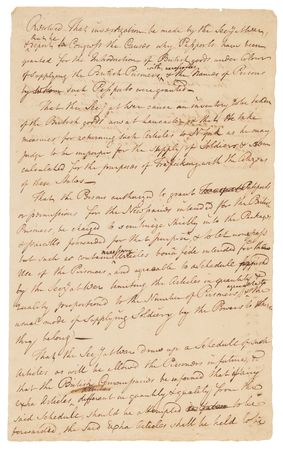 Resolved That investigation be made by the Secy at War
& report to Congress the Causes why Passports have been
granted for the Introduction of British goods under Colour
of supplying the British Prisoners with necessaries & the Names of Persons
by whom such Passports were granted —
That the Secy at War cause an inventory to be taken
of the British goods now at Lancaster, & that he take
measures for returning such Articles to as he may
judge to be improper for the supply of Soldiers, &
calculated for the purposes of Trafficking with the Citizens
of these States —
That the Persons authorized to grant Passports
or permissions for the Necessaries intended for the British
Prisoners be charged to scrutinize strictly into the Packages
& parcells presented for that purpose, & to let none pass
but such as contain necessary Articles bona fide intended for the
Use of the Prisoners, and agreeable to a Schedule
by the Secy at War limiting the Articles in quantity &
quality proportioned to the Number of Prisoners, & the
usual mode of supplying Soldiery by the Powers to whom
they belong —
That the Secy at War draw up a Schedule of such
Articles as will be allowed the Prisoners in future, &
that the British be informed that if any
extra Articles, different in quantity & quality from the
said Schedule, should be attempted to be
forwarded, the said extra Articles shall be held to be